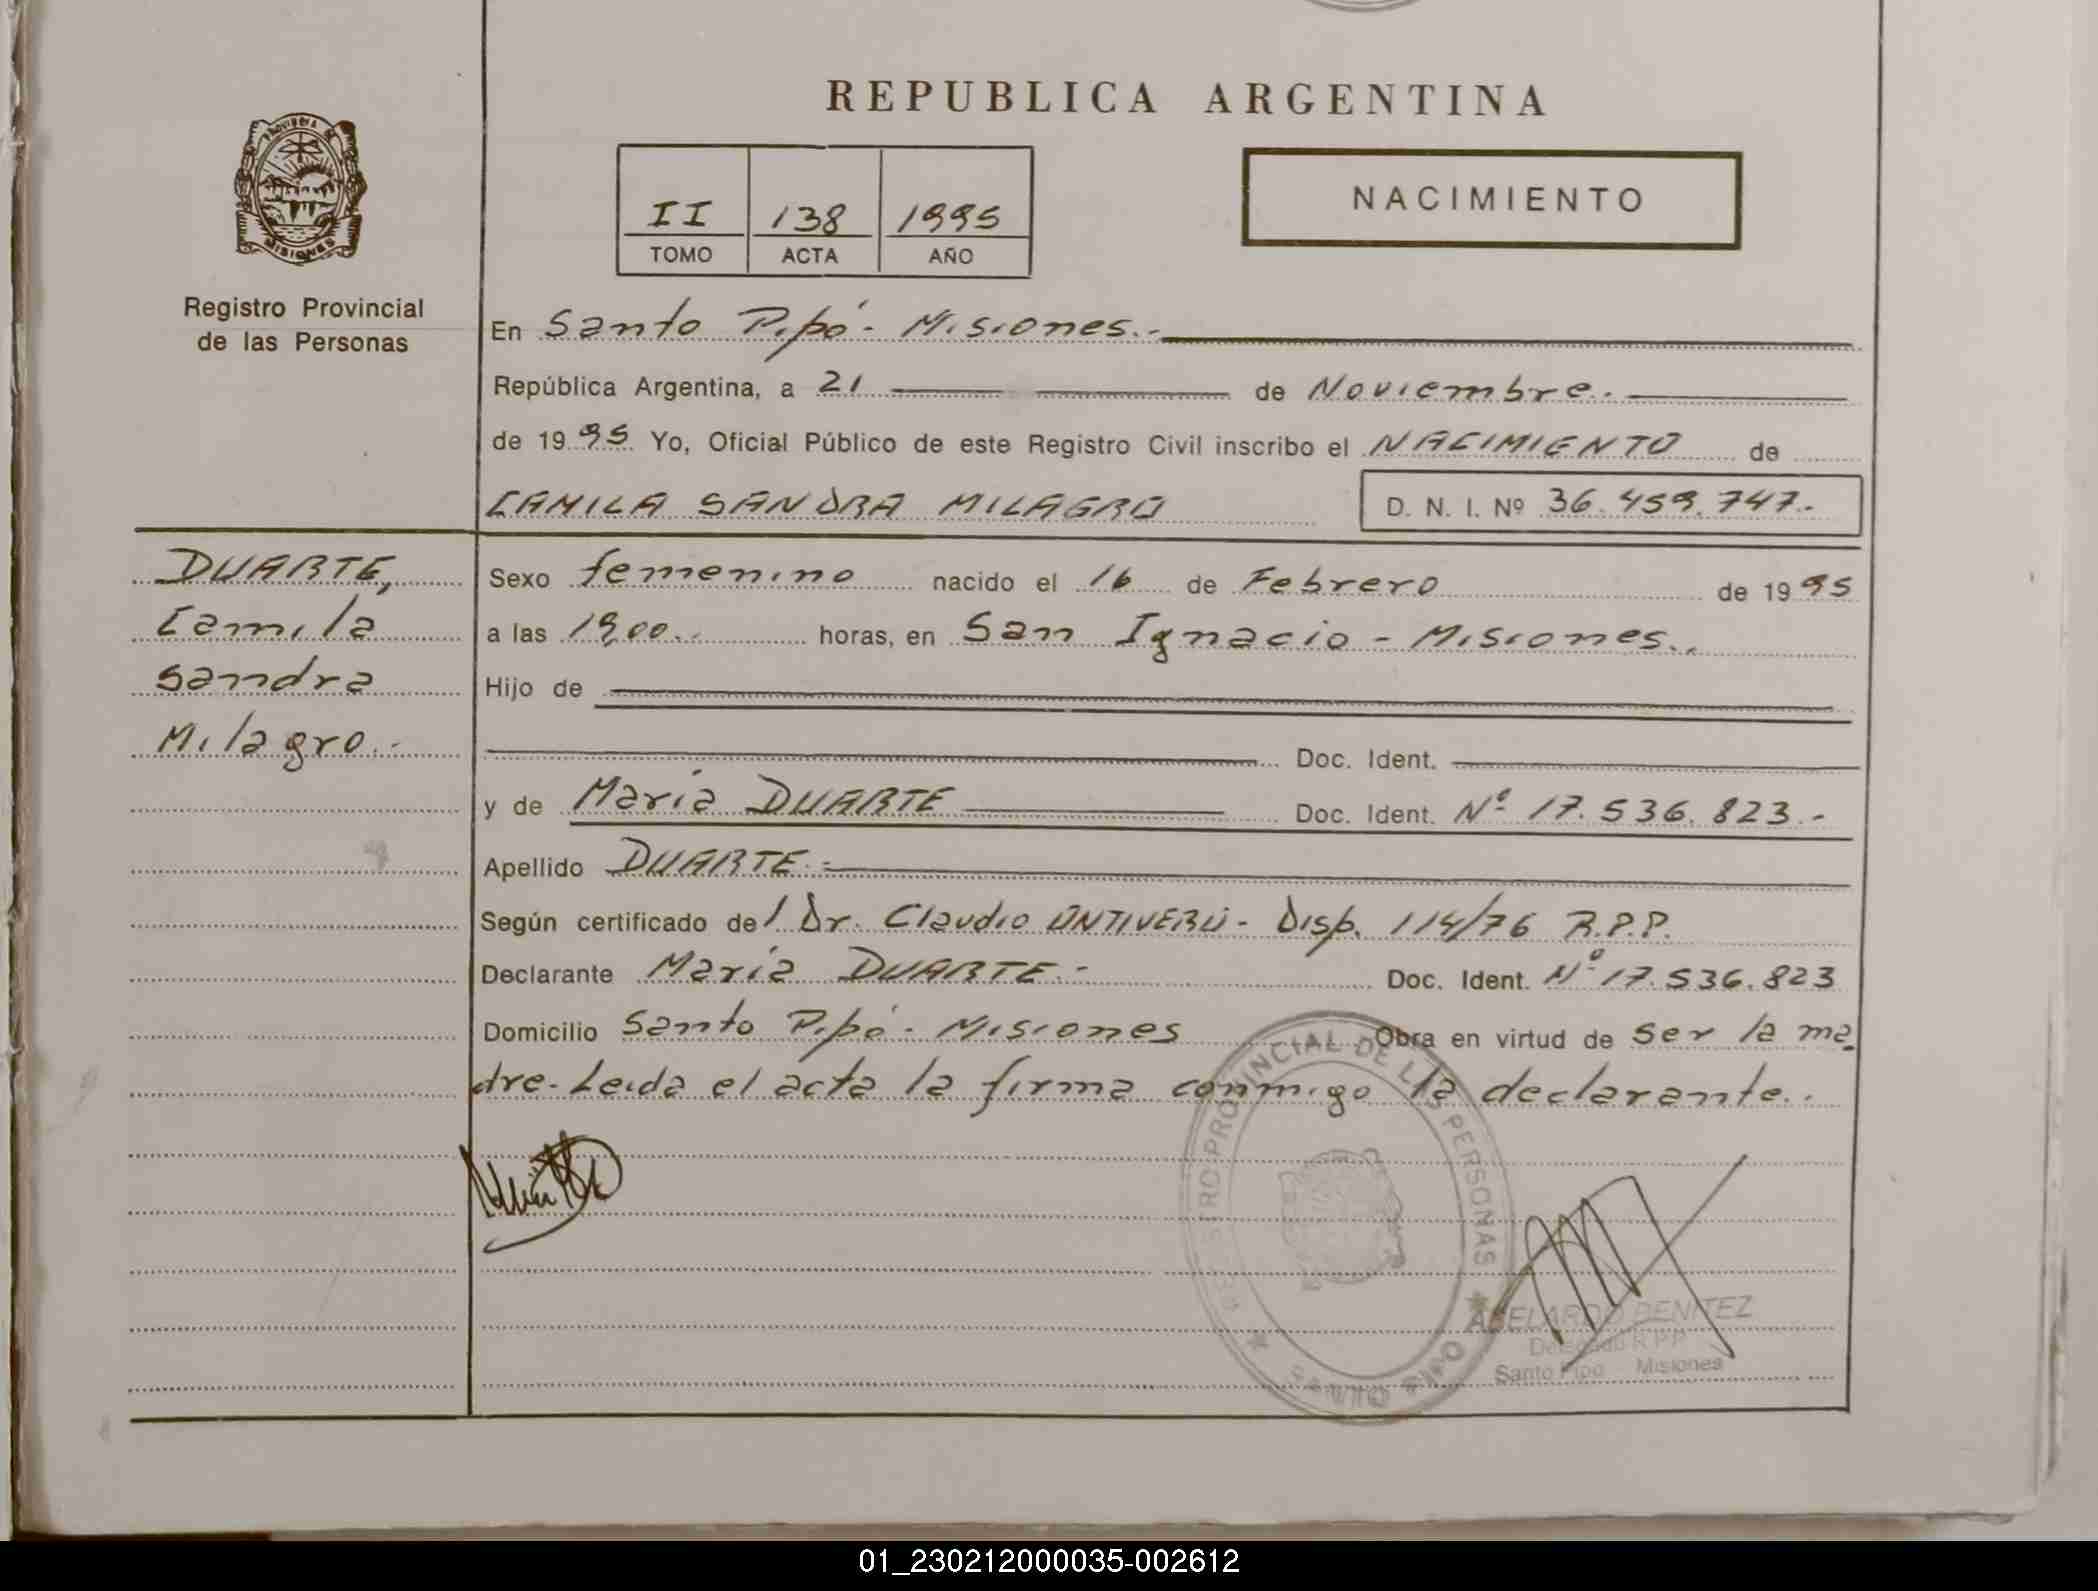 REPUBLICA ARGENTINA
PROVINCIA DE
MISIONES
Registro Provincial
de las Personas
II 138 1995
TOMO ACTA AÑO
NACIMIENTO
En Santo Pipó - Misiones.-
República Argentina, a 21 de Noviembre.
de 1995 Yo, Oficial Público de este Registro Civil inscribo el NACIMIENTO de
CAMILA SANDRA MILAGRO D. N. I. Nº 36.459.747.-
DUARTE,
Camila
Sandra
Milagro.-
Sexo femenino nacido el 16 de Febrero de 1995
a las 19,00.. horas, en San Ignacio - Misiones..
Hijo de
Doc. Ident.
y de María DUARTE Doc. Ident. Nº 17.536.823.-
Apellido DUARTE.-
Según certificado del Dr. Claudio ONTIVERO - Disp. 114/76 R.P.P.
Declarante María DUARTE.- Doc. Ident. Nº 17.536.823
Domicilio Santo Pipó - Misiones Obra en virtud de ser la ma
dre. Leida el acta la firma conmigo la declarante..
REGISTRO PROVINCIAL DE LAS PERSONAS
SANTO PIPO
ABELARDO BENITEZ
Delegado R.P.P.
Santo Pipo Misiones
01_230212000035-002612